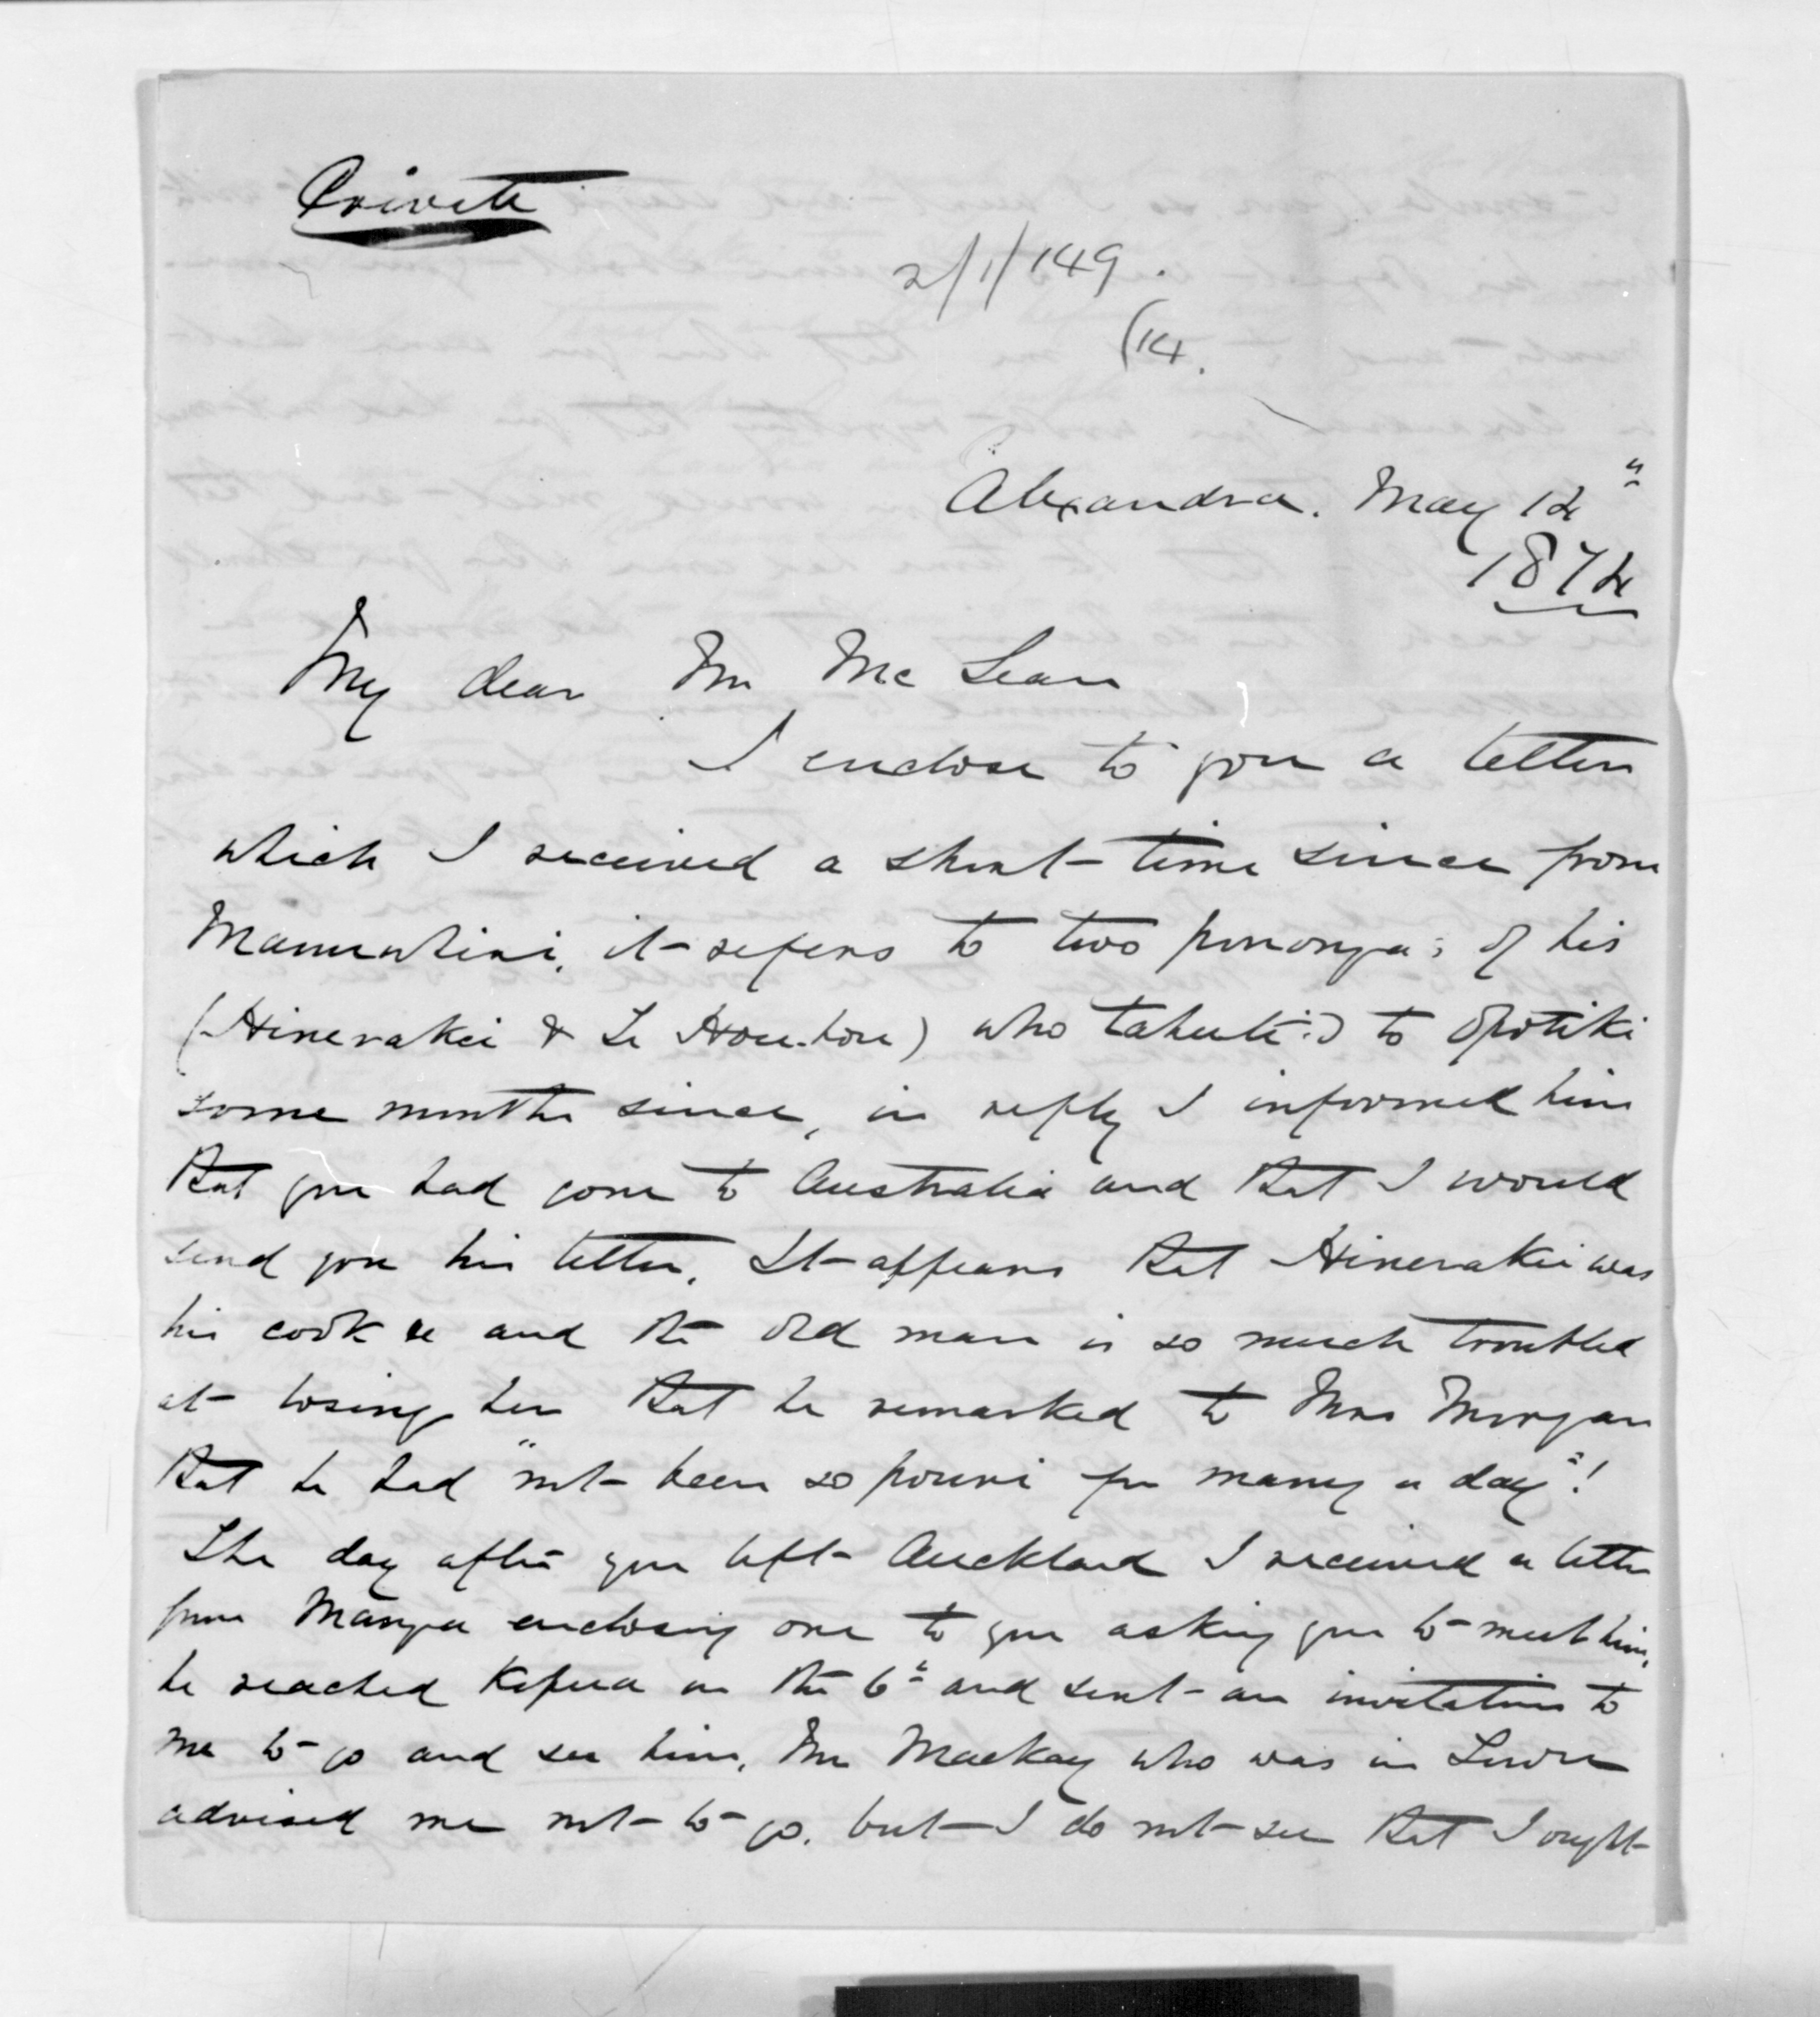 Private
2/1/149.
(14.
Alexandra. May 14"
1874
My dear Mr McLean
I enclose to you a letter
which I received a short time since from
Manuwhiri, it refers to two pononga's of his
(Hinerakei & Te Hou-hou) who tahuti'd to Opotiki
some months since, in reply I informed him
that you had gone to Australia and that I would
send you his letter. It appears that Hinerakei was
his cook and the old man is so much troubled
at losing her that he remarked to Mrs Morgan
that he had "not been so pouri for many a day"!
The day after you left Auckland I received a letter
from Manga enclosing one to you asking you to meet him,
he reached Kopua on the 6" and sent an invitation to
me to go and see him, Mr Mackay who was in Town
advised me not to go. but I do not see that I ought